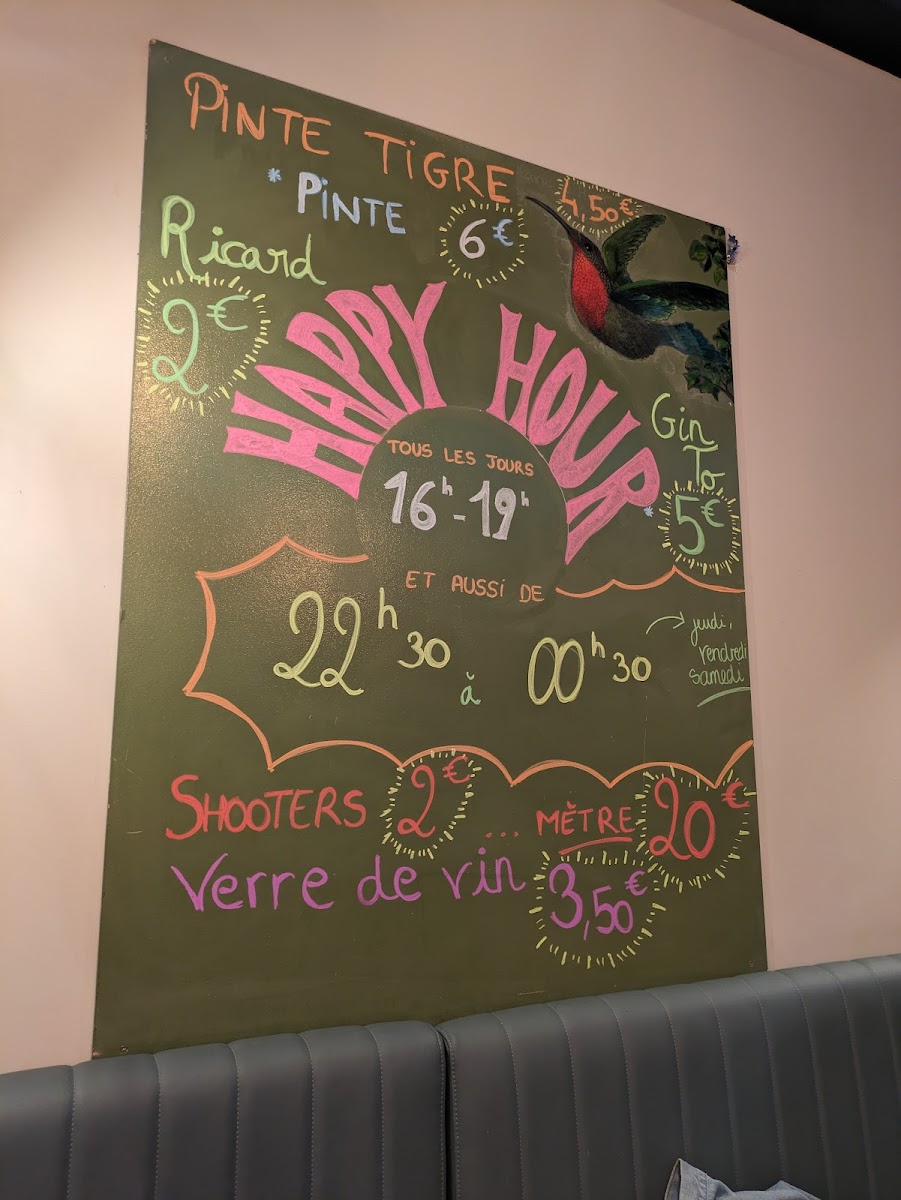 PINTE TIGRE 4,50€
* PINTE 6€
Ricard
2€
HAPPY HOUR *
TOUS LES JOURS
16h-19h
Gin
To
5€
ET AUSSI DE
22h30 à 00h30
jeudi,
vendredi
samedi
SHOOTERS 2€ ... MÈTRE 20€
Verre de vin 3,50€